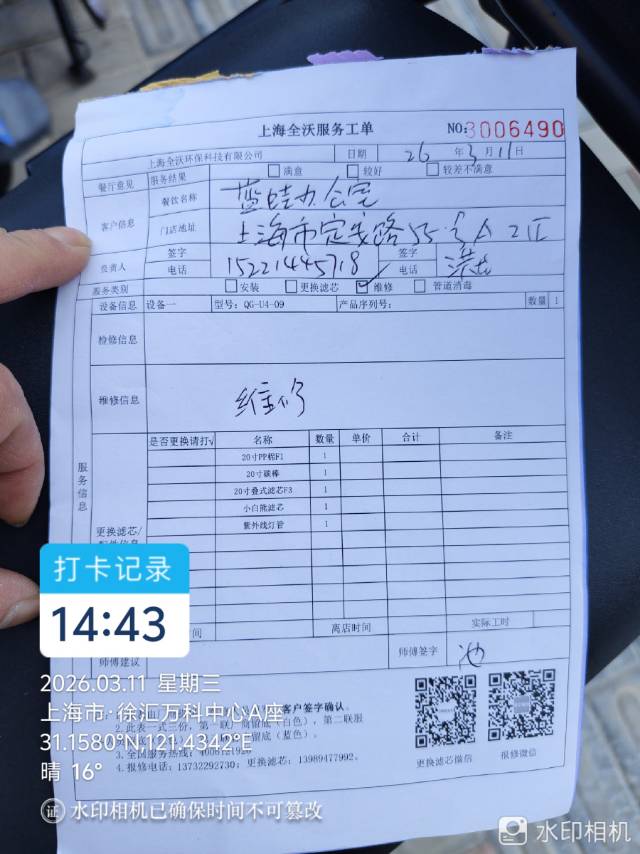 上海全沃服务工单
NO:3006490
上海全沃环保科技有限公司 日期 26 年 3 月 11 日
餐厅意见 服务结果 满意 较好 较差不满意
客户信息 餐饮名称 蓝蛙办公室
门店地址 上海市定安路55号A2区
负责人 签字 签字
电话 15221445718 电话
服务类别 安装 更换滤芯 维修 管道消毒
设备信息 设备一 型号: QG-U4-09 产品序列号: 数量 1
检修信息
维修信息 维修
服务信息
是否更换请打√ 名称 数量 单价 合计 备注
20寸PP棉F1 1
20寸碳棒 1
20寸叠式滤芯F3 1
小白熊滤芯 1
紫外线灯管 1
更换滤芯/
间 离店时间 实际工时
师傅建议 师傅签字 池
打卡记录
14:43
2026.03.11 星期三
上海市·徐汇万科中心A座
31.1580°N,121.4342°E
晴 16°
客户签字确认。
2.此表一式三份,第一联厂商留底(白色),第二联服
留底(蓝色)。
3.全国服务热线:
4.报修电话:13732292730;更换滤芯:13989477992。
更换滤芯微信
报修微信
证 水印相机已确保时间不可篡改
水印相机